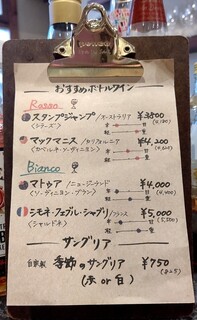 おすすめボトルワイン
Rosso
スタンプジャンプ/オーストラリア ¥3800
<シラーズ> (4,180)
マックマニス/カリフォルニア ¥4,200
<カベルネ・ソーヴィニヨン>
Bianco
マトゥア/ニュージーランド ¥4,000
<ソーヴィニヨン・ブラン> (4,400)
シモネ・フェブル・シャブリ/フランス ¥5,000
<シャルドネ> (5,500)
サングリア
自家製 季節のサングリア ¥750
(825)
(赤 or 白)